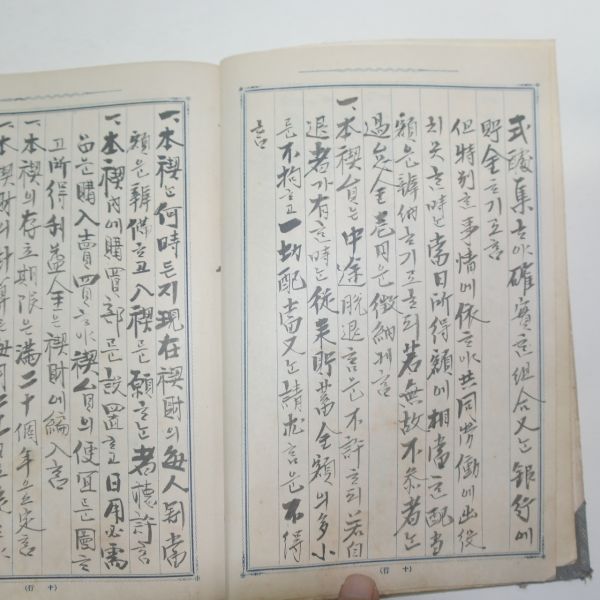 式醵集하야確實한組合又는銀行에
貯金하기로함
但特別한事情에依하야共同労働에出役
치못한時는當日所得額에相當한配當
額을辨納하기로하되若無故不参者는
過怠金壱円을徴納케함
一、本禊員은中途脱退함은不許하되若自
退者가有한時는従来貯蓄金額의多小
를不拘하고一切配當又는請求함을不得
함
(十行)
一、本禊는何時든지現在禊財의每人割當
額을辦備하고入禊를願하는者聽許함
一、本禊內에購買部를設置하고日用必需
品을購入賣買하야禊員의便宜를圖하
고所得利益金은禊財에編入함
一、本禊의存立期限은滿二十個年으로定함
一、本禊財의計算은每月二十
(十行)